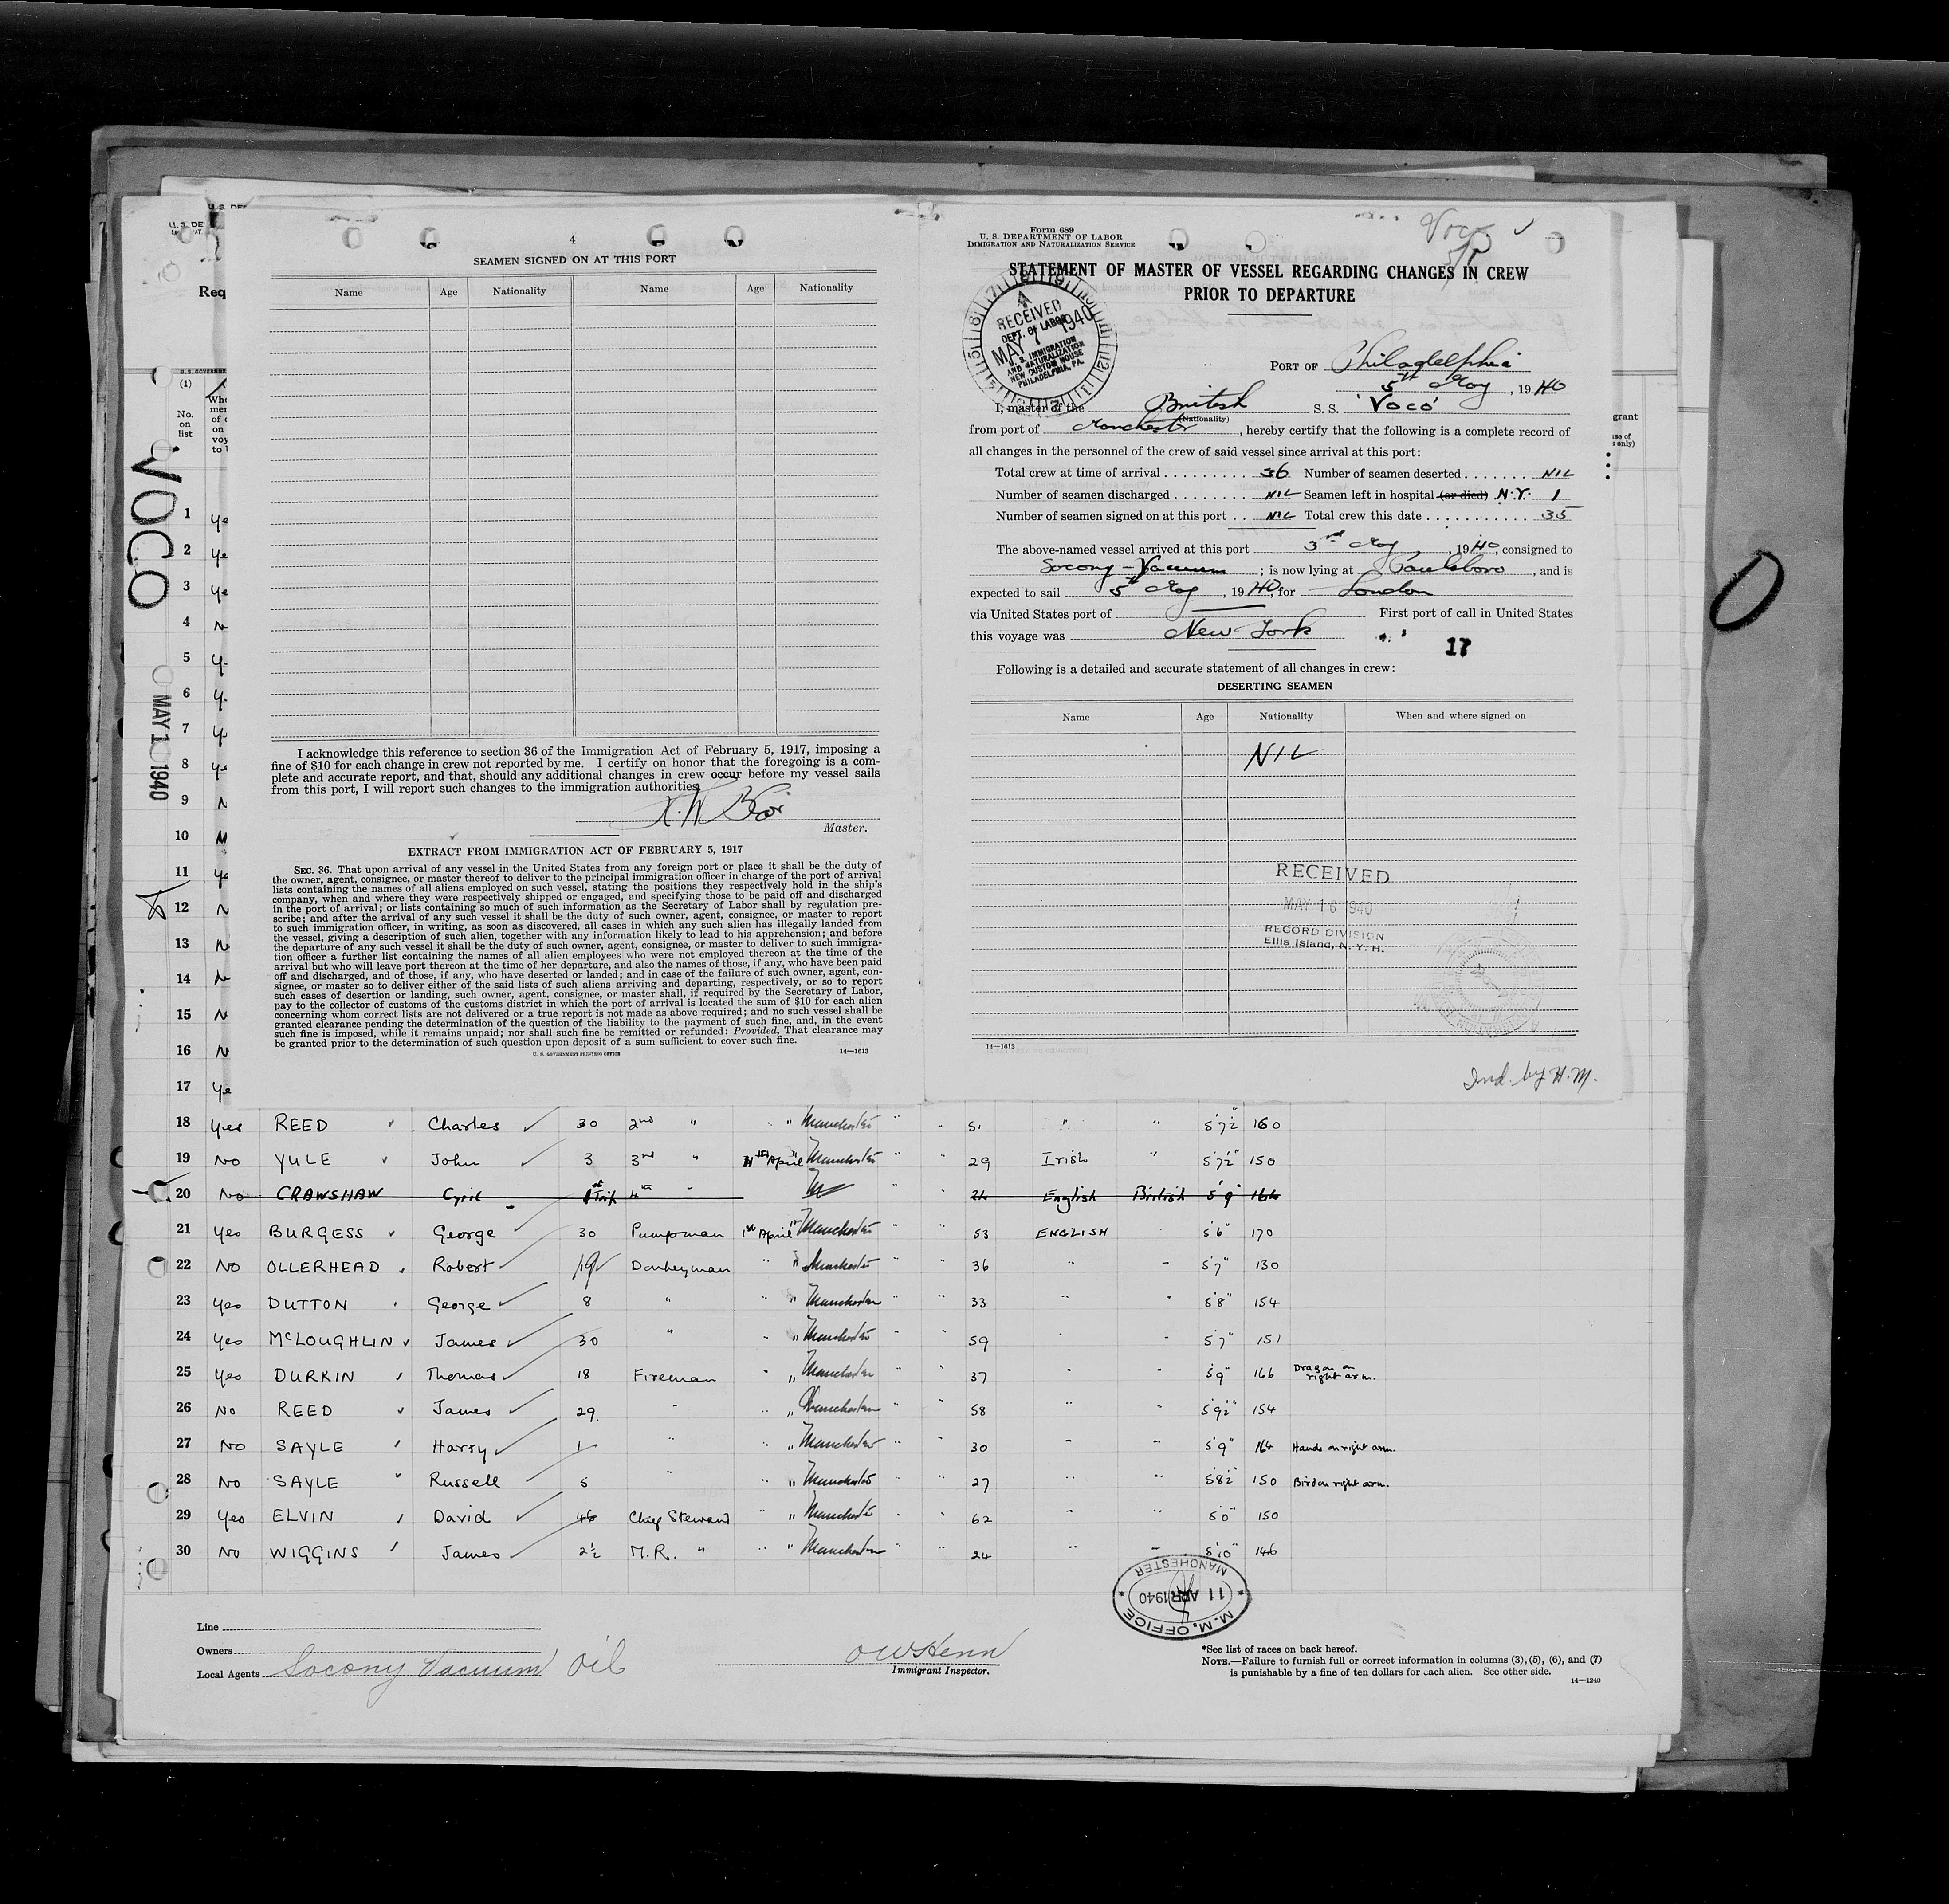 U. S. DE
U. S. DEP
Req
VOCO
MAY 1 1940
(1)
No.
on
list
grant
use of
s only)
4
SEAMEN SIGNED ON AT THIS PORT
Name Age Nationality Name Age Nationality
I acknowledge this reference to section 36 of the Immigration Act of February 5, 1917, imposing a
fine of $10 for each change in crew not reported by me. I certify on honor that the foregoing is a com-
plete and accurate report, and that, should any additional changes in crew occur before my vessel sails
from this port, I will report such changes to the immigration authorities.
Master.
EXTRACT FROM IMMIGRATION ACT OF FEBRUARY 5, 1917
SEC. 36. That upon arrival of any vessel in the United States from any foreign port or place it shall be the duty of
the owner, agent, consignee, or master thereof to deliver to the principal immigration officer in charge of the port of arrival
lists containing the names of all aliens employed on such vessel, stating the positions they respectively hold in the ship's
company, when and where they were respectively shipped or engaged, and specifying those to be paid off and discharged
in the port of arrival; or lists containing so much of such information as the Secretary of Labor shall by regulation pre-
scribe; and after the arrival of any such vessel it shall be the duty of such owner, agent, consignee, or master to report
to such immigration officer, in writing, as soon as discovered, all cases in which any such alien has illegally landed from
the vessel, giving a description of such alien, together with any information likely to lead to his apprehension; and before
the departure of any such vessel it shall be the duty of such owner, agent, consignee, or master to deliver to such immigra-
tion officer a further list containing the names of all alien employees who were not employed thereon at the time of the
arrival but who will leave port thereon at the time of her departure, and also the names of those, if any, who have been paid
off and discharged, and of those, if any, who have deserted or landed; and in case of the failure of such owner, agent, con-
signee, or master so to deliver either of the said lists of such aliens arriving and departing, respectively, or so to report
such cases of desertion or landing, such owner, agent, consignee, or master shall, if required by the Secretary of Labor,
pay to the collector of customs of the customs district in which the port of arrival is located the sum of $10 for each alien
concerning whom correct lists are not delivered or a true report is not made as above required; and no such vessel shall be
granted clearance pending the determination of the question of the liability to the payment of such fine, and, in the event
such fine is imposed, while it remains unpaid; nor shall such fine be remitted or refunded: Provided, That clearance may
be granted prior to the determination of such question upon deposit of a sum sufficient to cover such fine.
U. S. GOVERNMENT PRINTING OFFICE 14—1613
Form 689
U. S. DEPARTMENT OF LABOR
IMMIGRATION AND NATURALIZATION SERVICE
Voco
STATEMENT OF MASTER OF VESSEL REGARDING CHANGES IN CREW
PRIOR TO DEPARTURE
RECEIVED
DEPT. OF LABOR
MAY 7 1940
U. S. IMMIGRATION
AND NATURALIZATION
NEW CUSTOM HOUSE
PHILADELPHIA, PA.
PORT OF Philadelphia
5th May, 1940
I, master of the British S. S. 'Voco'
(Nationality)
from port of Manchester, hereby certify that the following is a complete record of
all changes in the personnel of the crew of said vessel since arrival at this port:
Total crew at time of arrival 36 Number of seamen deserted NIL
Number of seamen discharged NIL Seamen left in hospital (or died) N.Y. 1
Number of seamen signed on at this port NIL Total crew this date 35
The above-named vessel arrived at this port 3rd May, 1940, consigned to
Socony-Vacuum; is now lying at Paulsboro, and is
expected to sail 5th May, 1940, for London
via United States port of First port of call in United States
this voyage was New York
17
Following is a detailed and accurate statement of all changes in crew:
DESERTING SEAMEN
Name Age Nationality When and where signed on
NIL
RECEIVED
MAY 16 1940
RECORD DIVISION
Ellis Island, N. Y. H.
14—1613
Ind. by H.M.
1 ye
2 ye
3 ye
4 N
5 y
6 y
7 y
8 ye
9 N
10 N
11 ye
12 N
13 N
14 N
15 N
16 N
17 Ye
18 Yes REED Charles 30 2nd " " " Manchester " " 51 " " 5'7½" 160
19 No YULE John 3 3rd " 11th April Manchester " 29 Irish " 5'7½" 150
20 No CRAWSHAW Cyril 1st Trip 4th " " " 24 English British 5'9" 164
21 Yes BURGESS George 30 Pumpman 1st April Manchester " " 53 ENGLISH 5'6" 170
22 No OLLERHEAD Robert Donkeyman " " Manchester " " 36 " " 5'7" 130
23 Yes DUTTON George 8 " " " Manchester " " 33 " " 5'8" 154
24 Yes McLOUGHLIN James 30 " " " Manchester " " 59 " " 5'7" 151
25 Yes DURKIN Thomas 18 Fireman " " Manchester " " 37 " " 5'9" 166 Dragon on right arm.
26 No REED James 29 " " " Manchester " " 58 " " 5'9½" 154
27 No SAYLE Harry 1 " " " Manchester " " 30 " " 5'9" 164 Hands on right arm.
28 No SAYLE Russell 5 " " " Manchester " " 27 " " 5'8½" 150 Bird on right arm.
29 Yes ELVIN David 46 Chief Steward " " Manchester " " 62 " " 5'0" 150
30 No WIGGINS James 2½ M.R. " " " Manchester " " 24 " " 5'10" 146
M. M. OFFICE
11 APR 1940
MANCHESTER
Line
Owners
Local Agents Socony Vacuum Oil
Immigrant Inspector.
*See list of races on back hereof.
NOTE.—Failure to furnish full or correct information in columns (3), (5), (6), and (7)
is punishable by a fine of ten dollars for each alien. See other side.
14—1240